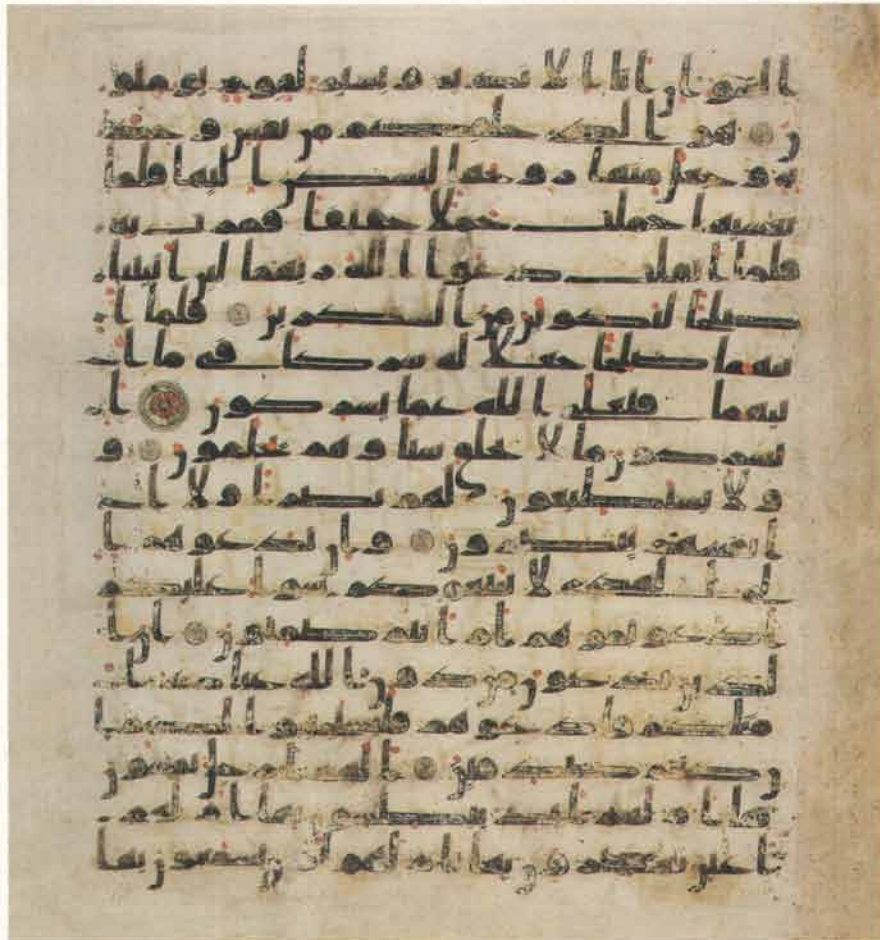 ا السو ان انا الا نذير و بشير لقوم يومنو
ن هو الذي خلقكم من نفس وحد
ة وجعل منها زوجها ليسكن اليها فلما
تغشيها حملت حملا خفيفا فمرت به
فلما اثقلت دعوا الله ربهما لين اتيتنا
صلحا لنكونن من الشكرين فلما ا
تيهما صلحا جعلا له شركا فيما ا
تيهما فتعلى الله عما يشركون ا
يشركون ما لا يخلق شيا وهم يخلقون و
لا يستطيعون لهم نصرا ولا ا
نفسهم ينصرون وان تدعوهم ا
لى الهدى لا يتبعوكم سوا عليكم
ادعوتموهم ام انتم صمتون ان ا
لذين تدعون من دون الله عباد ا
مثلكم فادعوهم فليستجيبوا لكم ا
ن كنتم صدقين الهم ارجل يمشون
بها ام لهم ايد يبطشون بها ام لهم
اعين يبصرون بها ام لهم اذان يسمعون بها